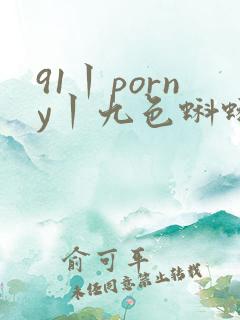 91丨porn
y丨九色蝌
俞可平
未经同意禁止转载